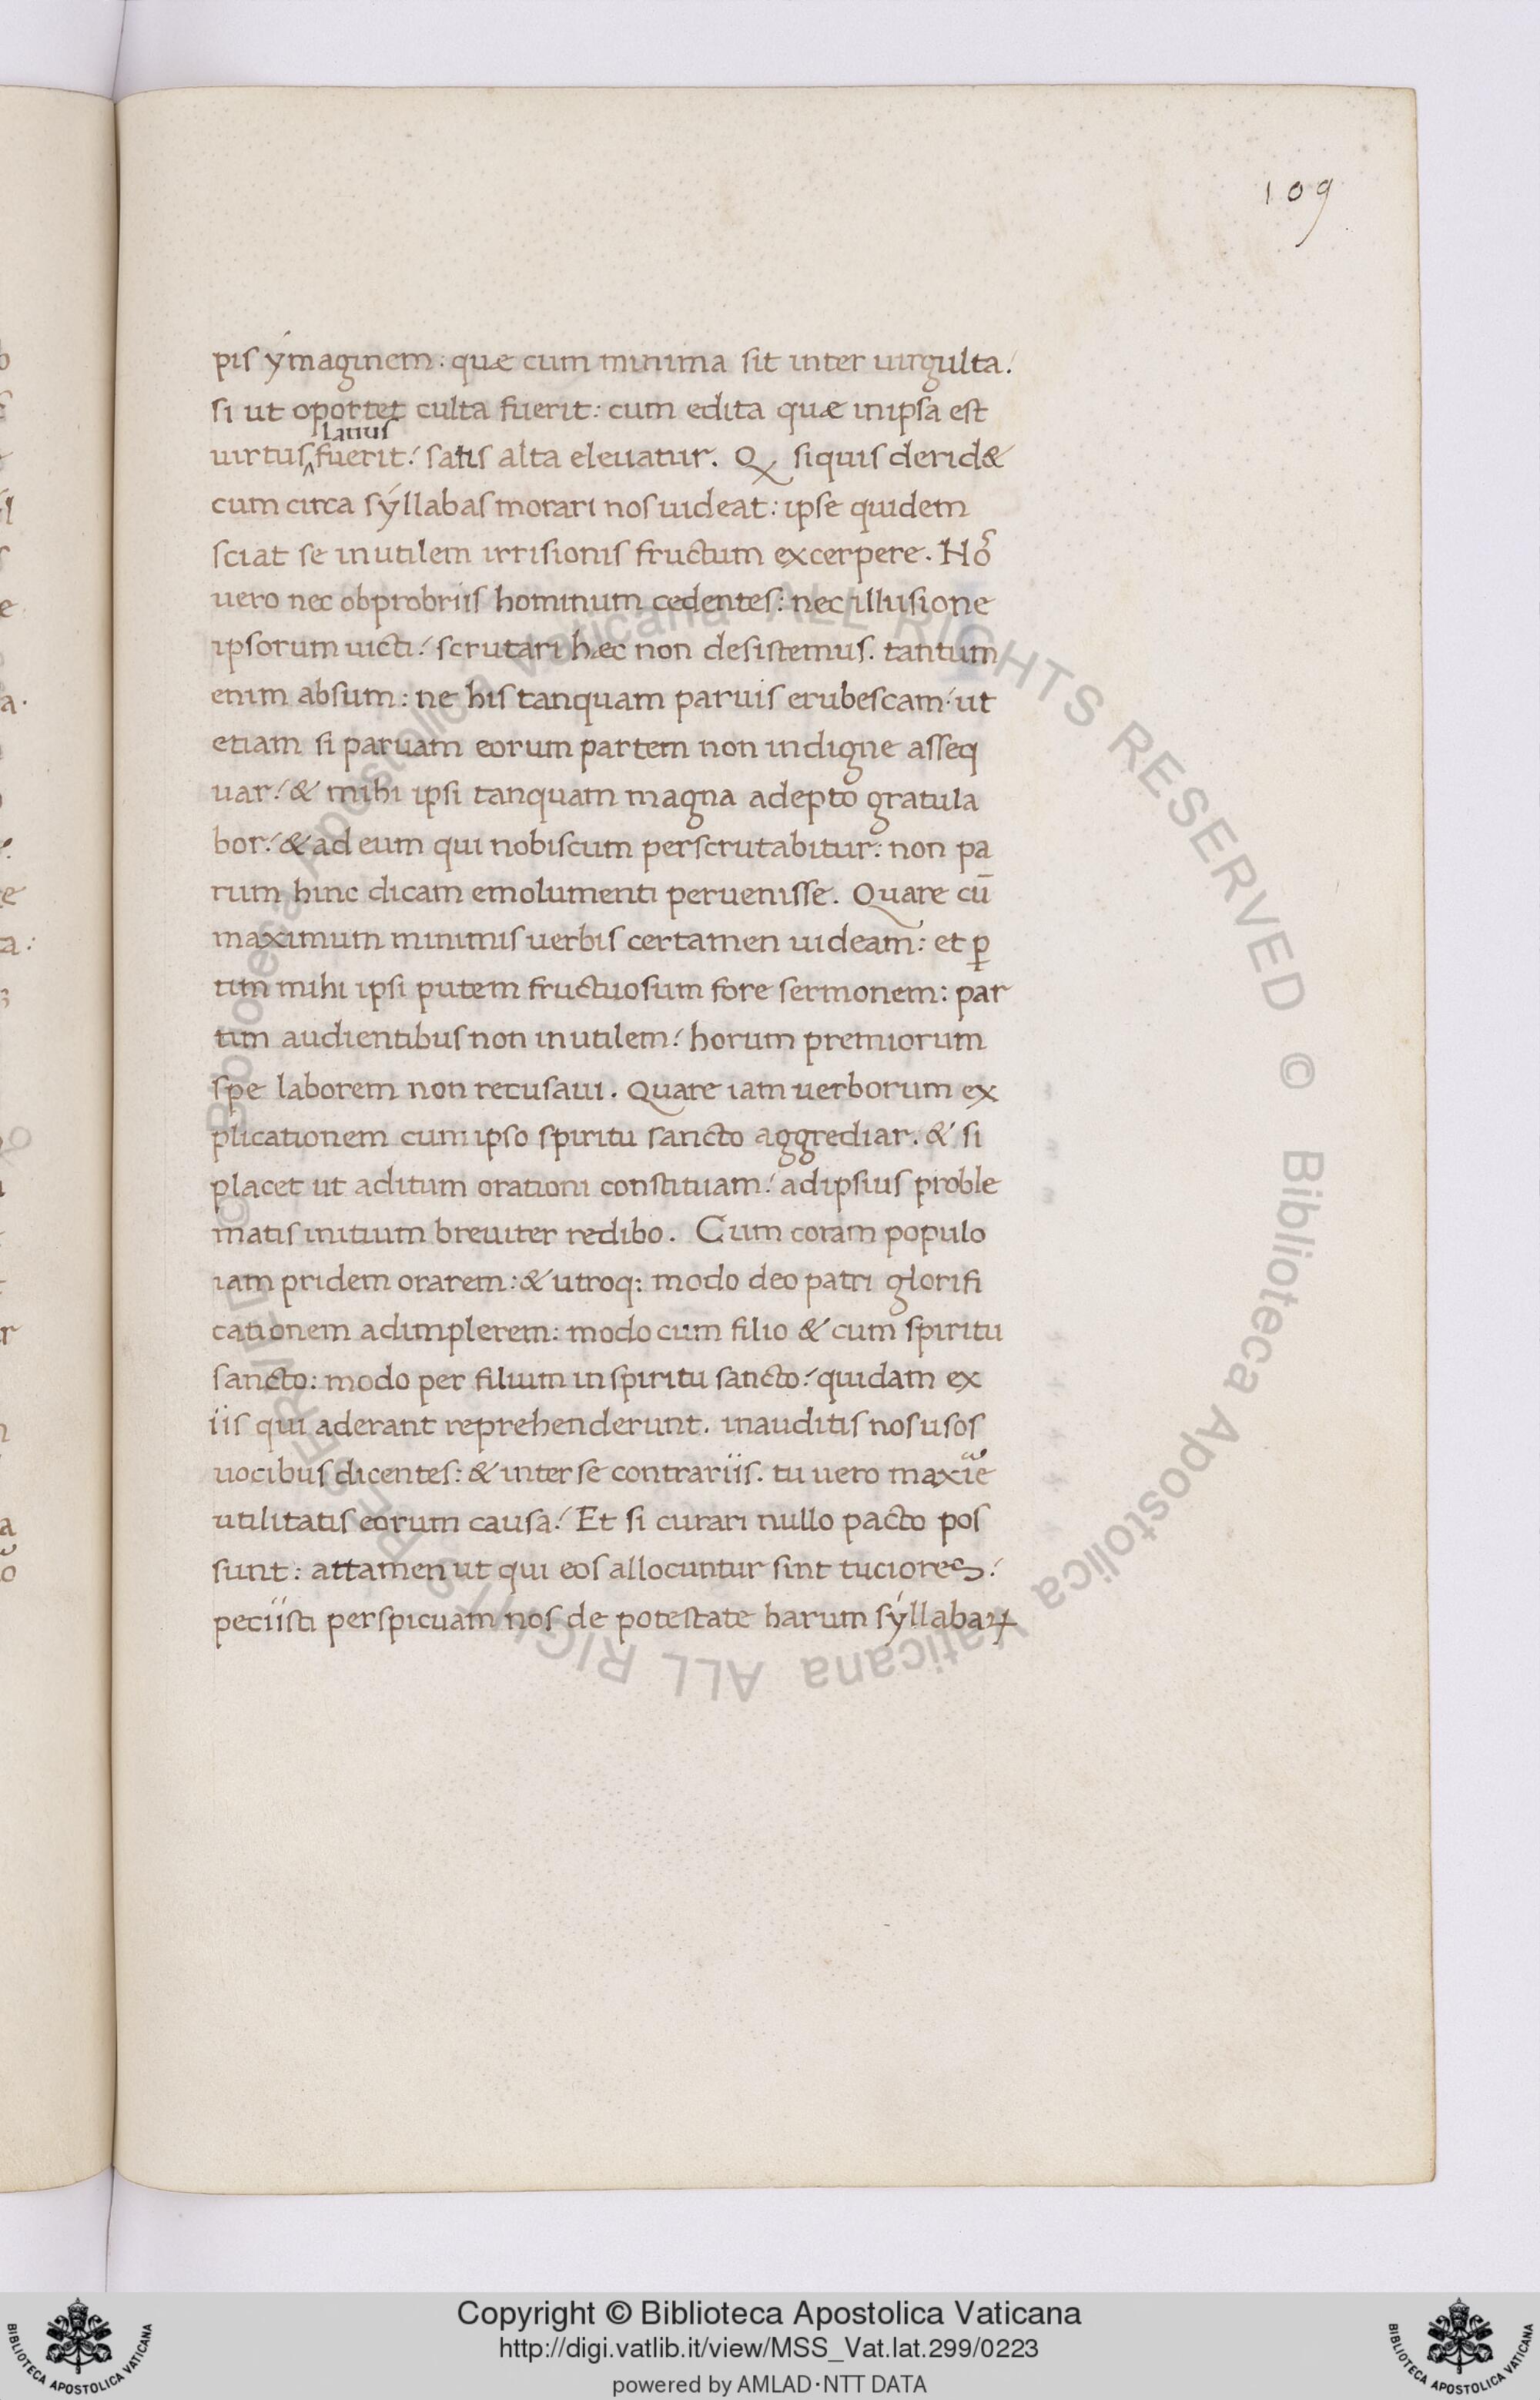 109
pis ýmaginem: quæ cum minima sit inter uirgulta:
si ut oportet culta fuerit: cum edita quæ inipsa est
latius
uirtus fuerit: satis alta eleuatur. Q siquis derid&
cum circa sýllabas morari nos uideat: ipse quidem
sciat se inutilem irrisionis fructum excerpere. Hoͬ
uero nec obprobriis hominum cedentes: nec illusione
ipsorum uicti: scrutari hæc non desistemus. tantum
enim absum: ne his tanquam paruis erubescam: ut
etiam si paruam eorum partem non indigne asseq
uar: & mihi ipsi tanquam magna adepto gratula
bor: & ad eum qui nobiscum perscrutabitur: non pa
rum hinc dicam emolumenti peruenisse. Quare cū
maximum minimis uerbis certamen uideam: et ꝑ
tim mihi ipsi putem fructuosum fore sermonem: par
tim audientibus non inutilem: horum premiorum
spe laborem non recusaui. Quare iam uerborum ex
plicationem cum ipso spiritu sancto aggrediar. & si
placet ut aditum orationi constituam: adipsius proble
matis initium breuiter redibo. Cum coram populo
iam pridem orarem: & utroq: modo deo patri glorifi
cationem adimplerem: modo cum filio & cum spiritu
sancto: modo per filium in spiritu sancto: quidam ex
iis qui aderant reprehenderunt. inauditis nos usos
uocibus dicentes: & inter se contrariis. tu uero maxīe
utilitatis eorum causa: Et si curari nullo pacto pos
sunt: attamen ut qui eos allocuntur sint tuciores:
petiisti perspicuam nos de potestate harum sýllabaꝝ
Copyright © Biblioteca Apostolica Vaticana
http://digi.vatlib.it/view/MSS_Vat.lat.299/0223
powered by AMLAD·NTT DATA
BIBLIOTECA APOSTOLICA VATICANA
BIBLIOTECA APOSTOLICA VATICANA